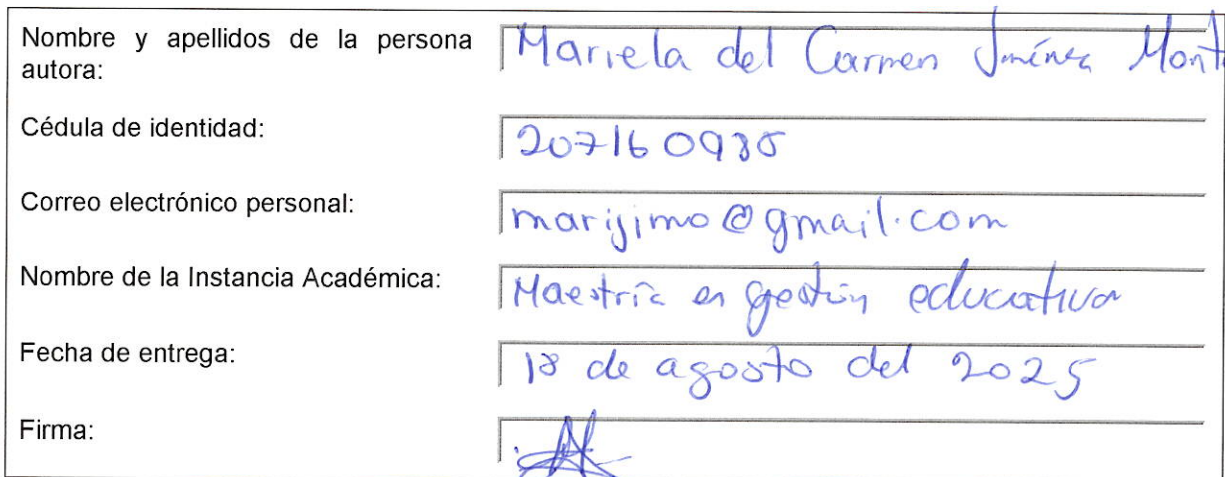 Nombre y apellidos de la persona
autora:
Mariela del Carmen Jiménez
Cédula de identidad:
Correo electrónico personal:
marijimo@gmail.com
Nombre de la Instancia Académica:
Maestría en gestión educativa
Fecha de entrega:
18 de agosto del 2025
Firma: